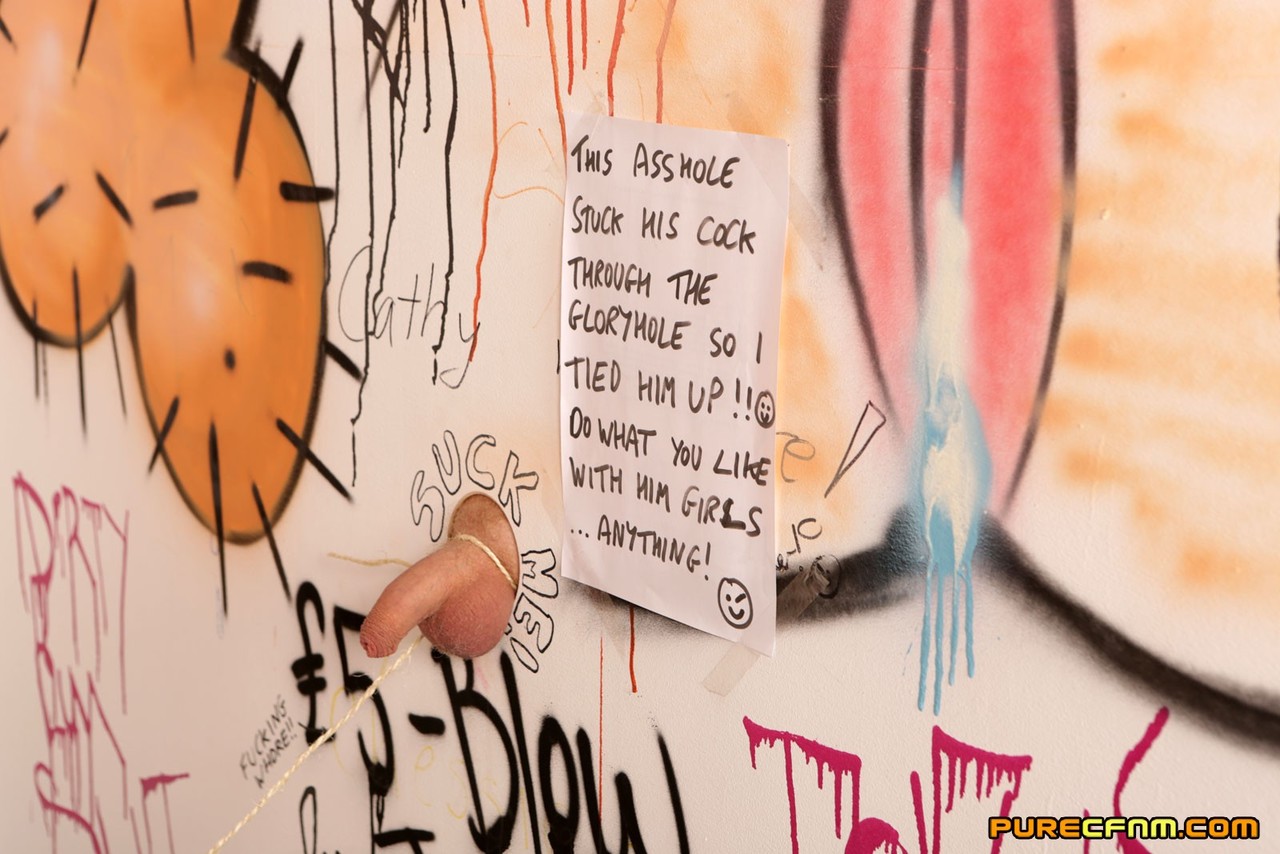 THIS ASSHOLE
STUCK HIS COCK
THROUGH THE
GLORYHOLE SO I
TIED HIM UP!!
DO WHAT YOU LIKE
WITH HIM GIRLS
...ANYTHING!
Cathy
SUCK
ME!
DIRTY
CUM
FUCKING
WHORE!!
£5-Blow
PURECFNM.COM